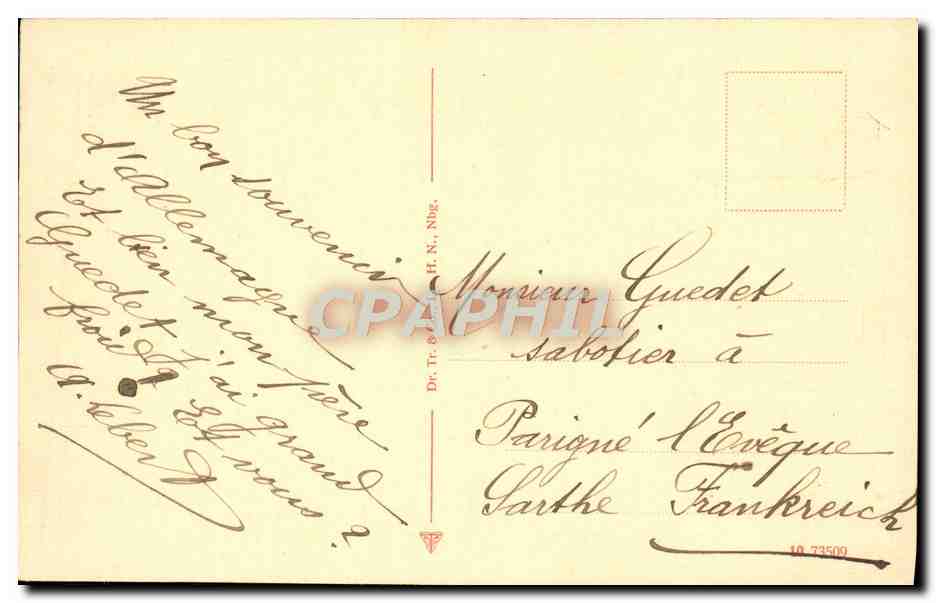 Un bon souvenir
d'Allemagne
Et bien mon père
Guedet j'ai grand
froid Et vous ?
A. Lebert
Dr. Tr. &
H. N., Nbg.
CPAPHIL
Monsieur Guedet
sabotier à
Parigné l'Evêque
Sarthe Frankreich
10 73509